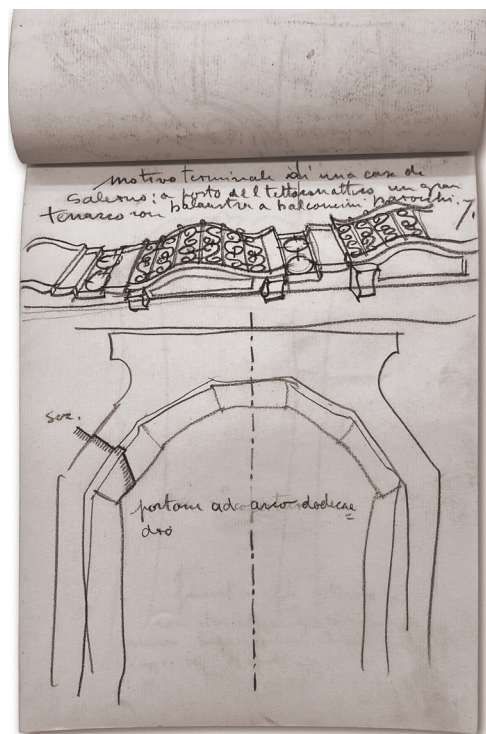 motivo terminale di una casa di
Salerno: a posto del tetto un gran
terrazzo con balaustra a balconcini barocchi.
7.
sez.
portone ad arco dodecae
dro